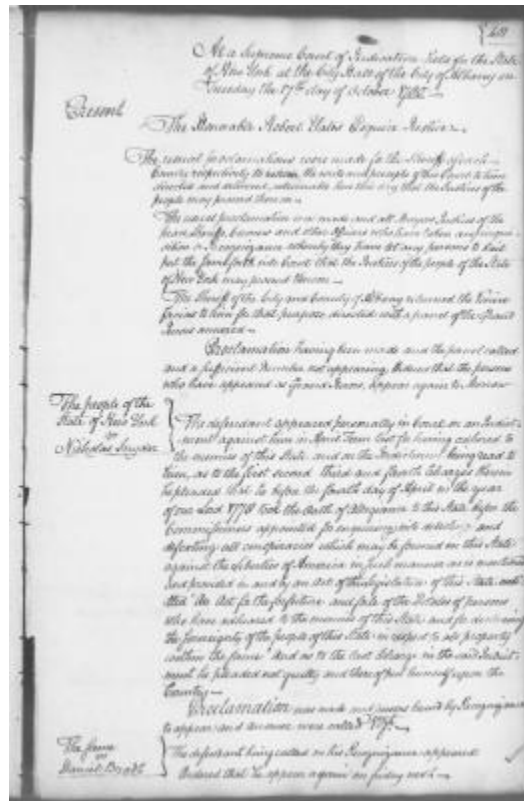 At a Supreme Court of Judicature held for the State
of New York at the City Hall of the City of Albany on
Tuesday the 17th day of October
Present
The Honorable Robert Yates Esquire Justice
The usual proclamations were made for the Sheriff of each
County respectively to return the writs and precepts of this Court to him
directed and delivered, returnable here this day that the Justices of the
people may proceed thereon
The usual proclamation was made and all Mayors Justices of the
peace Sheriffs, Coroners and other officers who have taken any inqui-
sition or Recognizance whereby they have let any persons to bail
put the same forth into Court that the Justices of the people of the State
of New York may proceed thereon
The Sheriff of the City and County of Albany returned the Venire
facias to him for that purpose directed with a panel of the Grand
Jurors annexed
Proclamation having been made and the panel called
and a sufficient Number not appearing Ordered that the persons
who have appeared as Grand Jurors, appear again to Morrow
The people of the
State of New York
vs
Nicholas Snyder
The defendant appeared personally in Court on an Indict-
ment against him in Term last for having adhered to
the enemies of this State and on the Indictment being read to
him, as to the first second third and fourth Charges therein
he pleaded that he before the fourth day of April in the year
of our Lord 1778 took the Oath of Allegiance to this State before the
Commissioners appointed for enquiring into detecting and
defeating all conspiracies which may be formed in this State
against the Liberties of America in such manner as is mentioned
and provided in and by an Act of the legislature of this State enti-
tled "An Act for the forfeiture and sale of the Estates of persons
who have adhered to the enemies of this State and for declaring
the Sovereignty of the people of this State in respect to all property
within the same" And as to the last Charge in the said Indict-
ment he pleaded not guilty and thereof put himself upon the
Country
Proclamation was made and persons bound by Recognizance
to appear and answer were called
The same
vs
Daniel
The defendant being called on his Recognizance appeared
Ordered that he appear again on friday next